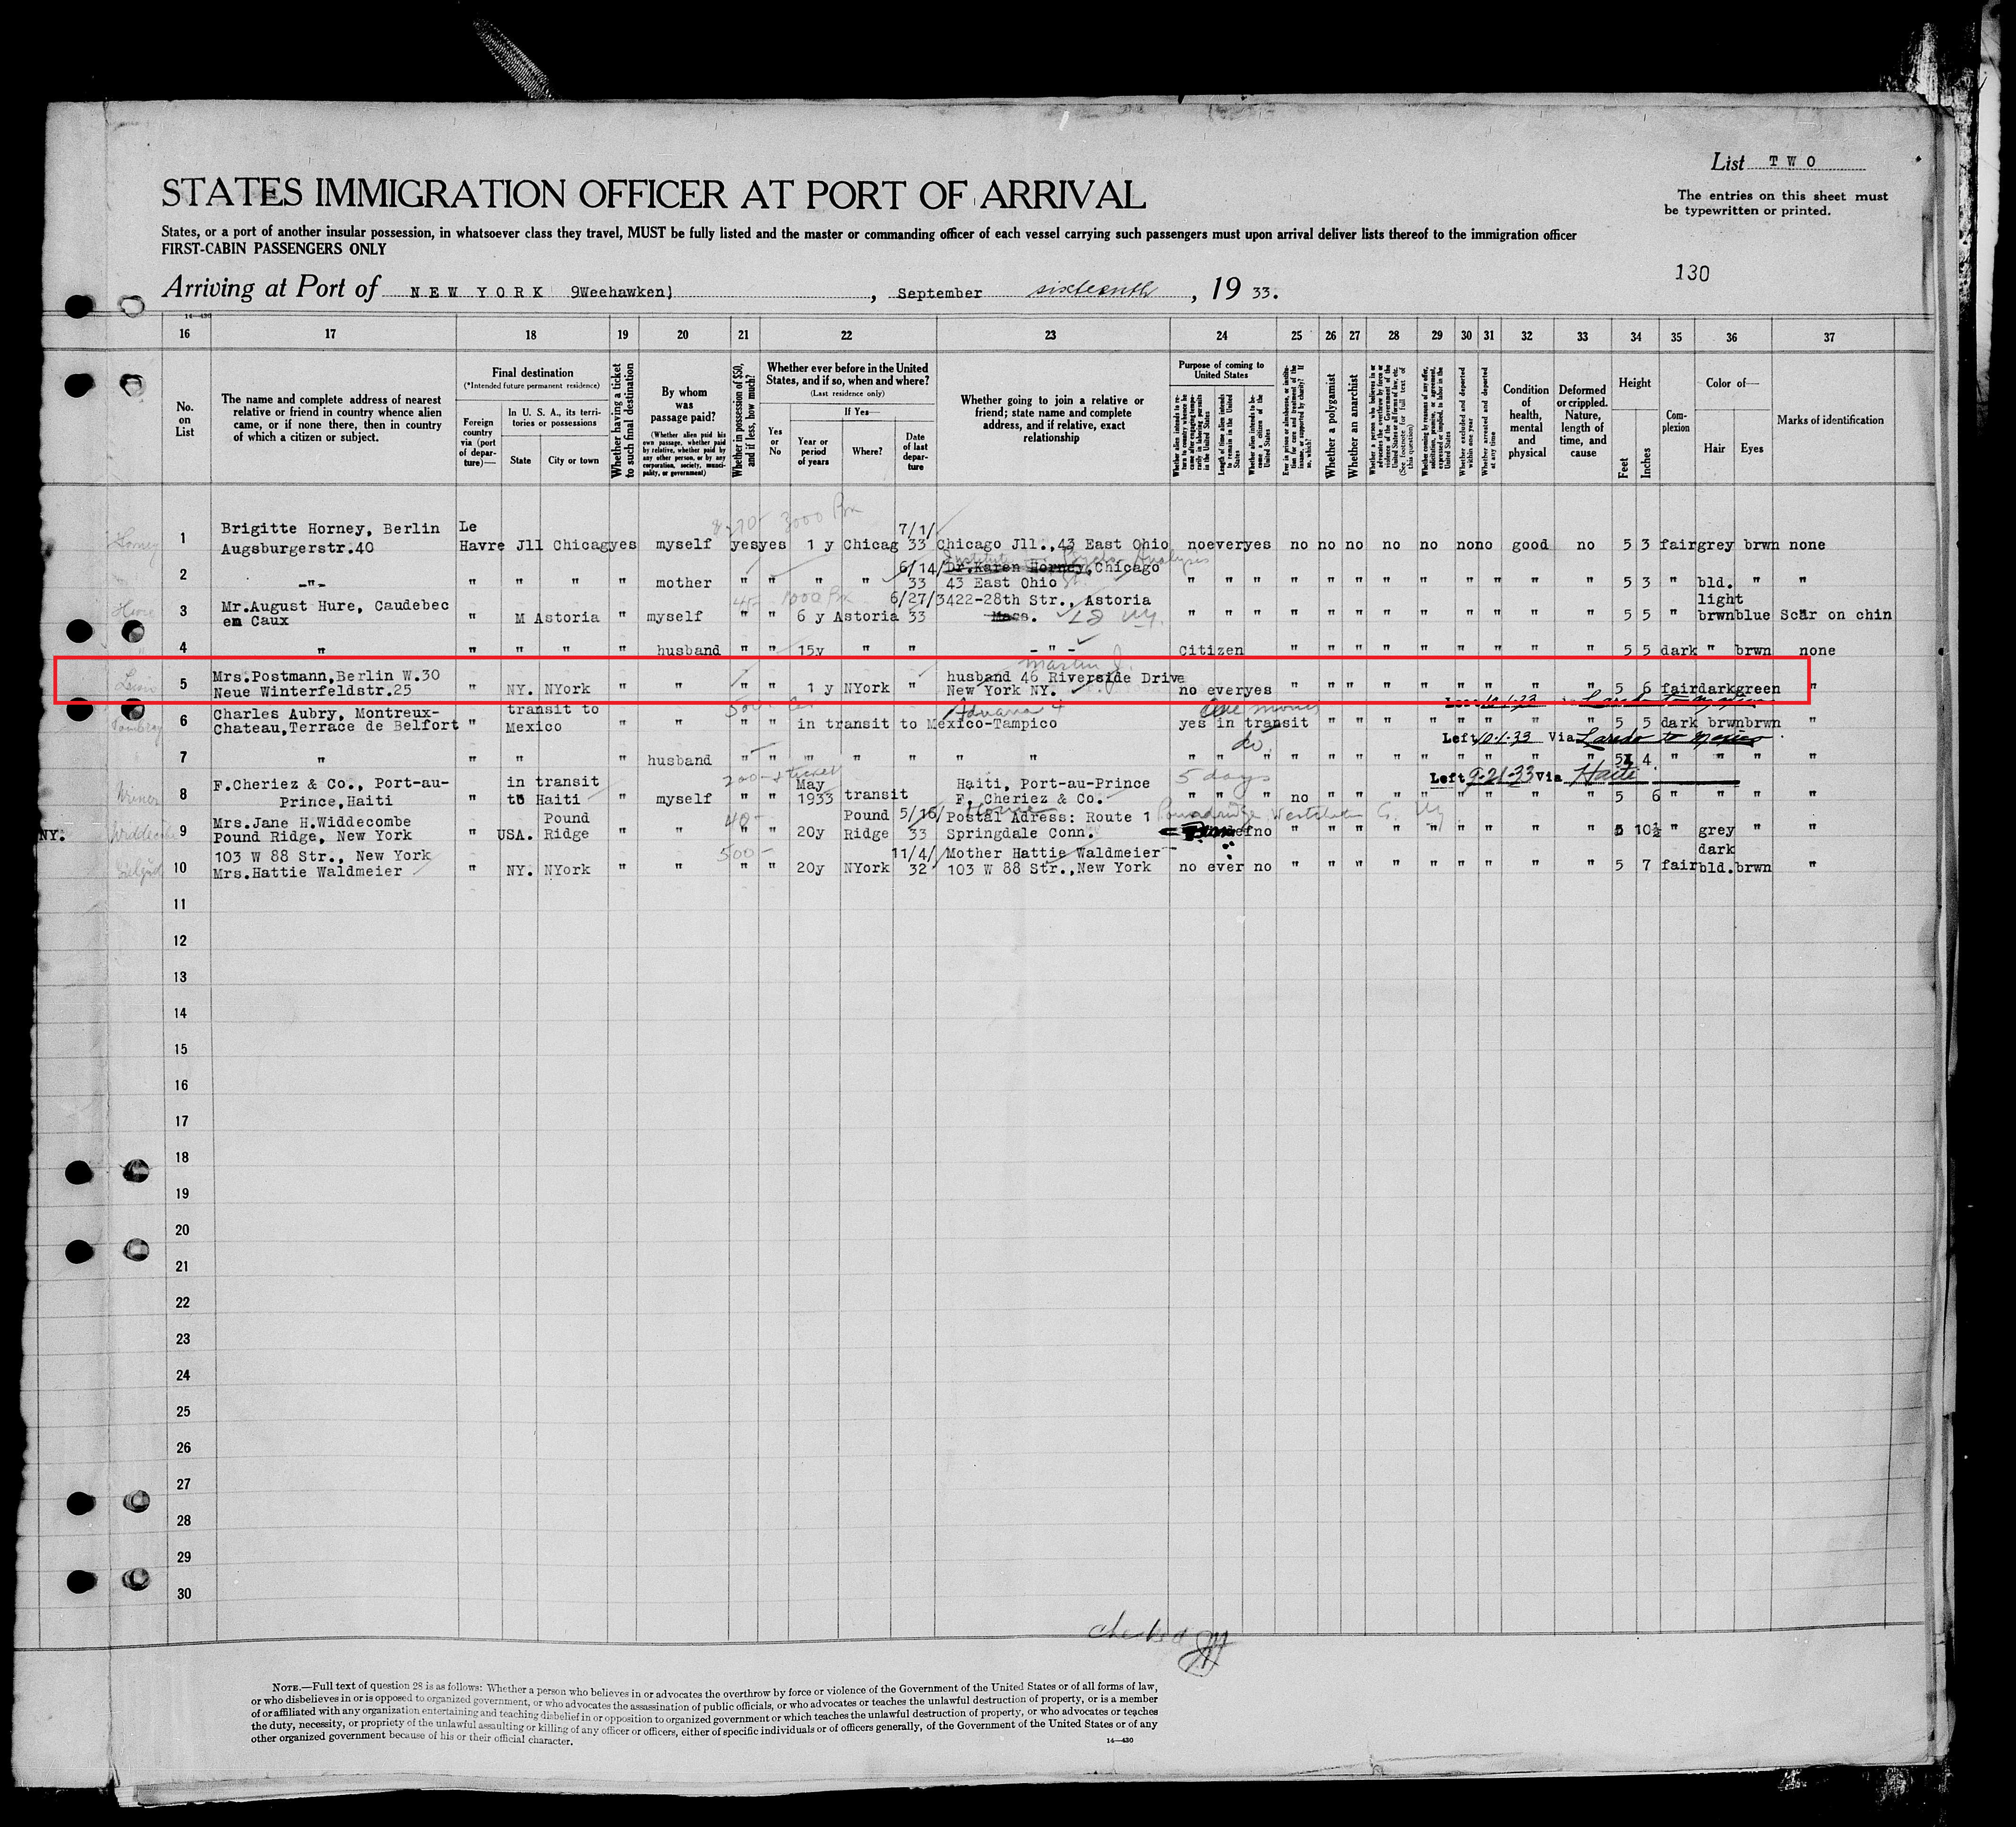 List TWO
The entries on this sheet must
be typewritten or printed.
STATES IMMIGRATION OFFICER AT PORT OF ARRIVAL
States, or a port of another insular possession, in whatsoever class they travel, MUST be fully listed and the master or commanding officer of each vessel carrying such passengers must upon arrival deliver lists thereof to the immigration officer
FIRST-CABIN PASSENGERS ONLY
130
Arriving at Port of NEW YORK 9Weehawken) , September sixteenth , 19 33.
14—430
16 17 18 19 20 21 22 23 24 25 26 27 28 29 30 31 32 33 34 35 36 37
No. on List
The name and complete address of nearest relative or friend in country whence alien came, or if none there, then in country of which a citizen or subject.
Final destination
(*Intended future permanent residence)
Foreign country via (port of departure)—
In U. S. A., its territories or possessions
State City or town
Whether having a ticket to such final destination
By whom was passage paid?
(Whether alien paid his own passage, whether paid by relative, whether paid by any other person, or by any corporation, society, municipality, or government)
Whether in possession of $50, and if less, how much?
Whether ever before in the United States, and if so, when and where?
(Last residence only)
Yes or No
If Yes—
Year or period of years Where? Date of last departure
Whether going to join a relative or friend; state name and complete address, and if relative, exact relationship
Purpose of coming to United States
Length of time alien intends to remain in the United States
Whether alien intends to become a citizen of the United States
Whether a polygamist
Whether an anarchist
Whether excluded and deported within one year
Whether arrested and deported at any time
Condition of health, mental and physical
Deformed or crippled. Nature, length of time, and cause
Height
Feet Inches
Complexion
Color of—
Hair Eyes
Marks of identification
Horney 1 Brigitte Horney, Berlin Augsburgerstr.40 Le Havre Jll Chicag yes myself yes yes 1 y Chicag 7/1/33 Chicago Jll.,43 East Ohio no ever yes no no no no no no no good no 5 3 fair grey brwn none
2 -"- " " " " mother " " " " 6/14/33 Dr.Karen Horney,Chicago 43 East Ohio St. " " " " " " " " " " " " 5 3 " bld. " "
Hure 3 Mr.August Hure, Caudebec en Caux " M Astoria " myself " " 6 y Astoria 6/27/33 3422-28th Str., Astoria Mass. " " " " " " " " " " " " 5 5 " light brwn blue Scar on chin
4 " " " " " husband " " 15y " " -"- Citizen " " " " " " " " " 5 5 dark " brwn none
5 Mrs.Postmann,Berlin W.30 Neue Winterfeldstr.25 " NY. NYork " " " " 1 y NYork " Martin J. husband 46 Riverside Drive New York NY. no ever yes " " " " " " " " " 5 6 fair dark green "
6 Charles Aubry, Montreux- Chateau,Terrace de Belfort " transit to Mexico " " " " in transit to Mexico-Tampico yes in transit " " " " " " " " " 5 5 dark brwn brwn "
Left 10-1-33 Via Laredo to Mexico
7 " " " " " husband " " " " " " " " do. " " " " " " " " " 5 4 " " " "
Left 9-21-33 Via Haiti
8 F.Cheriez & Co., Port-au-Prince,Haiti " in transit to Haiti " myself " " May 1933 transit Haiti, Port-au-Prince F. Cheriez & Co. 5 days " " " no " " " " " " " " 5 6 " " " "
NY. 9 Mrs.Jane H.Widdecombe Pound Ridge, New York " USA. Pound Ridge " " 40- " " 20y Pound Ridge 5/16/33 Postal Adress: Route 1 Springdale Conn. no " " " " " " " " " 5 10½ " grey " "
10 103 W 88 Str., New York Mrs.Hattie Waldmeier " NY. NYork " " 500- " " 20y NYork 11/4/32 Mother Hattie Waldmeier 103 W 88 Str.,New York no ever no " " " " " " " " " 5 7 fair dark bld. brwn "
11
12
13
14
15
16
17
18
19
20
21
22
23
24
25
26
27
28
29
30
checked
NOTE.—Full text of question 28 is as follows: Whether a person who believes in or advocates the overthrow by force or violence of the Government of the United States or of all forms of law,
or who disbelieves in or is opposed to organized government, or who advocates the assassination of public officials, or who advocates or teaches the unlawful destruction of property, or is a member
of or affiliated with any organization entertaining and teaching disbelief in or opposition to organized government or which teaches the unlawful destruction of property, or who advocates or teaches
the duty, necessity, or propriety of the unlawful assaulting or killing of any officer or officers, either of specific individuals or of officers generally, of the Government of the United States or of any
other organized government because of his or their official character.
14—430